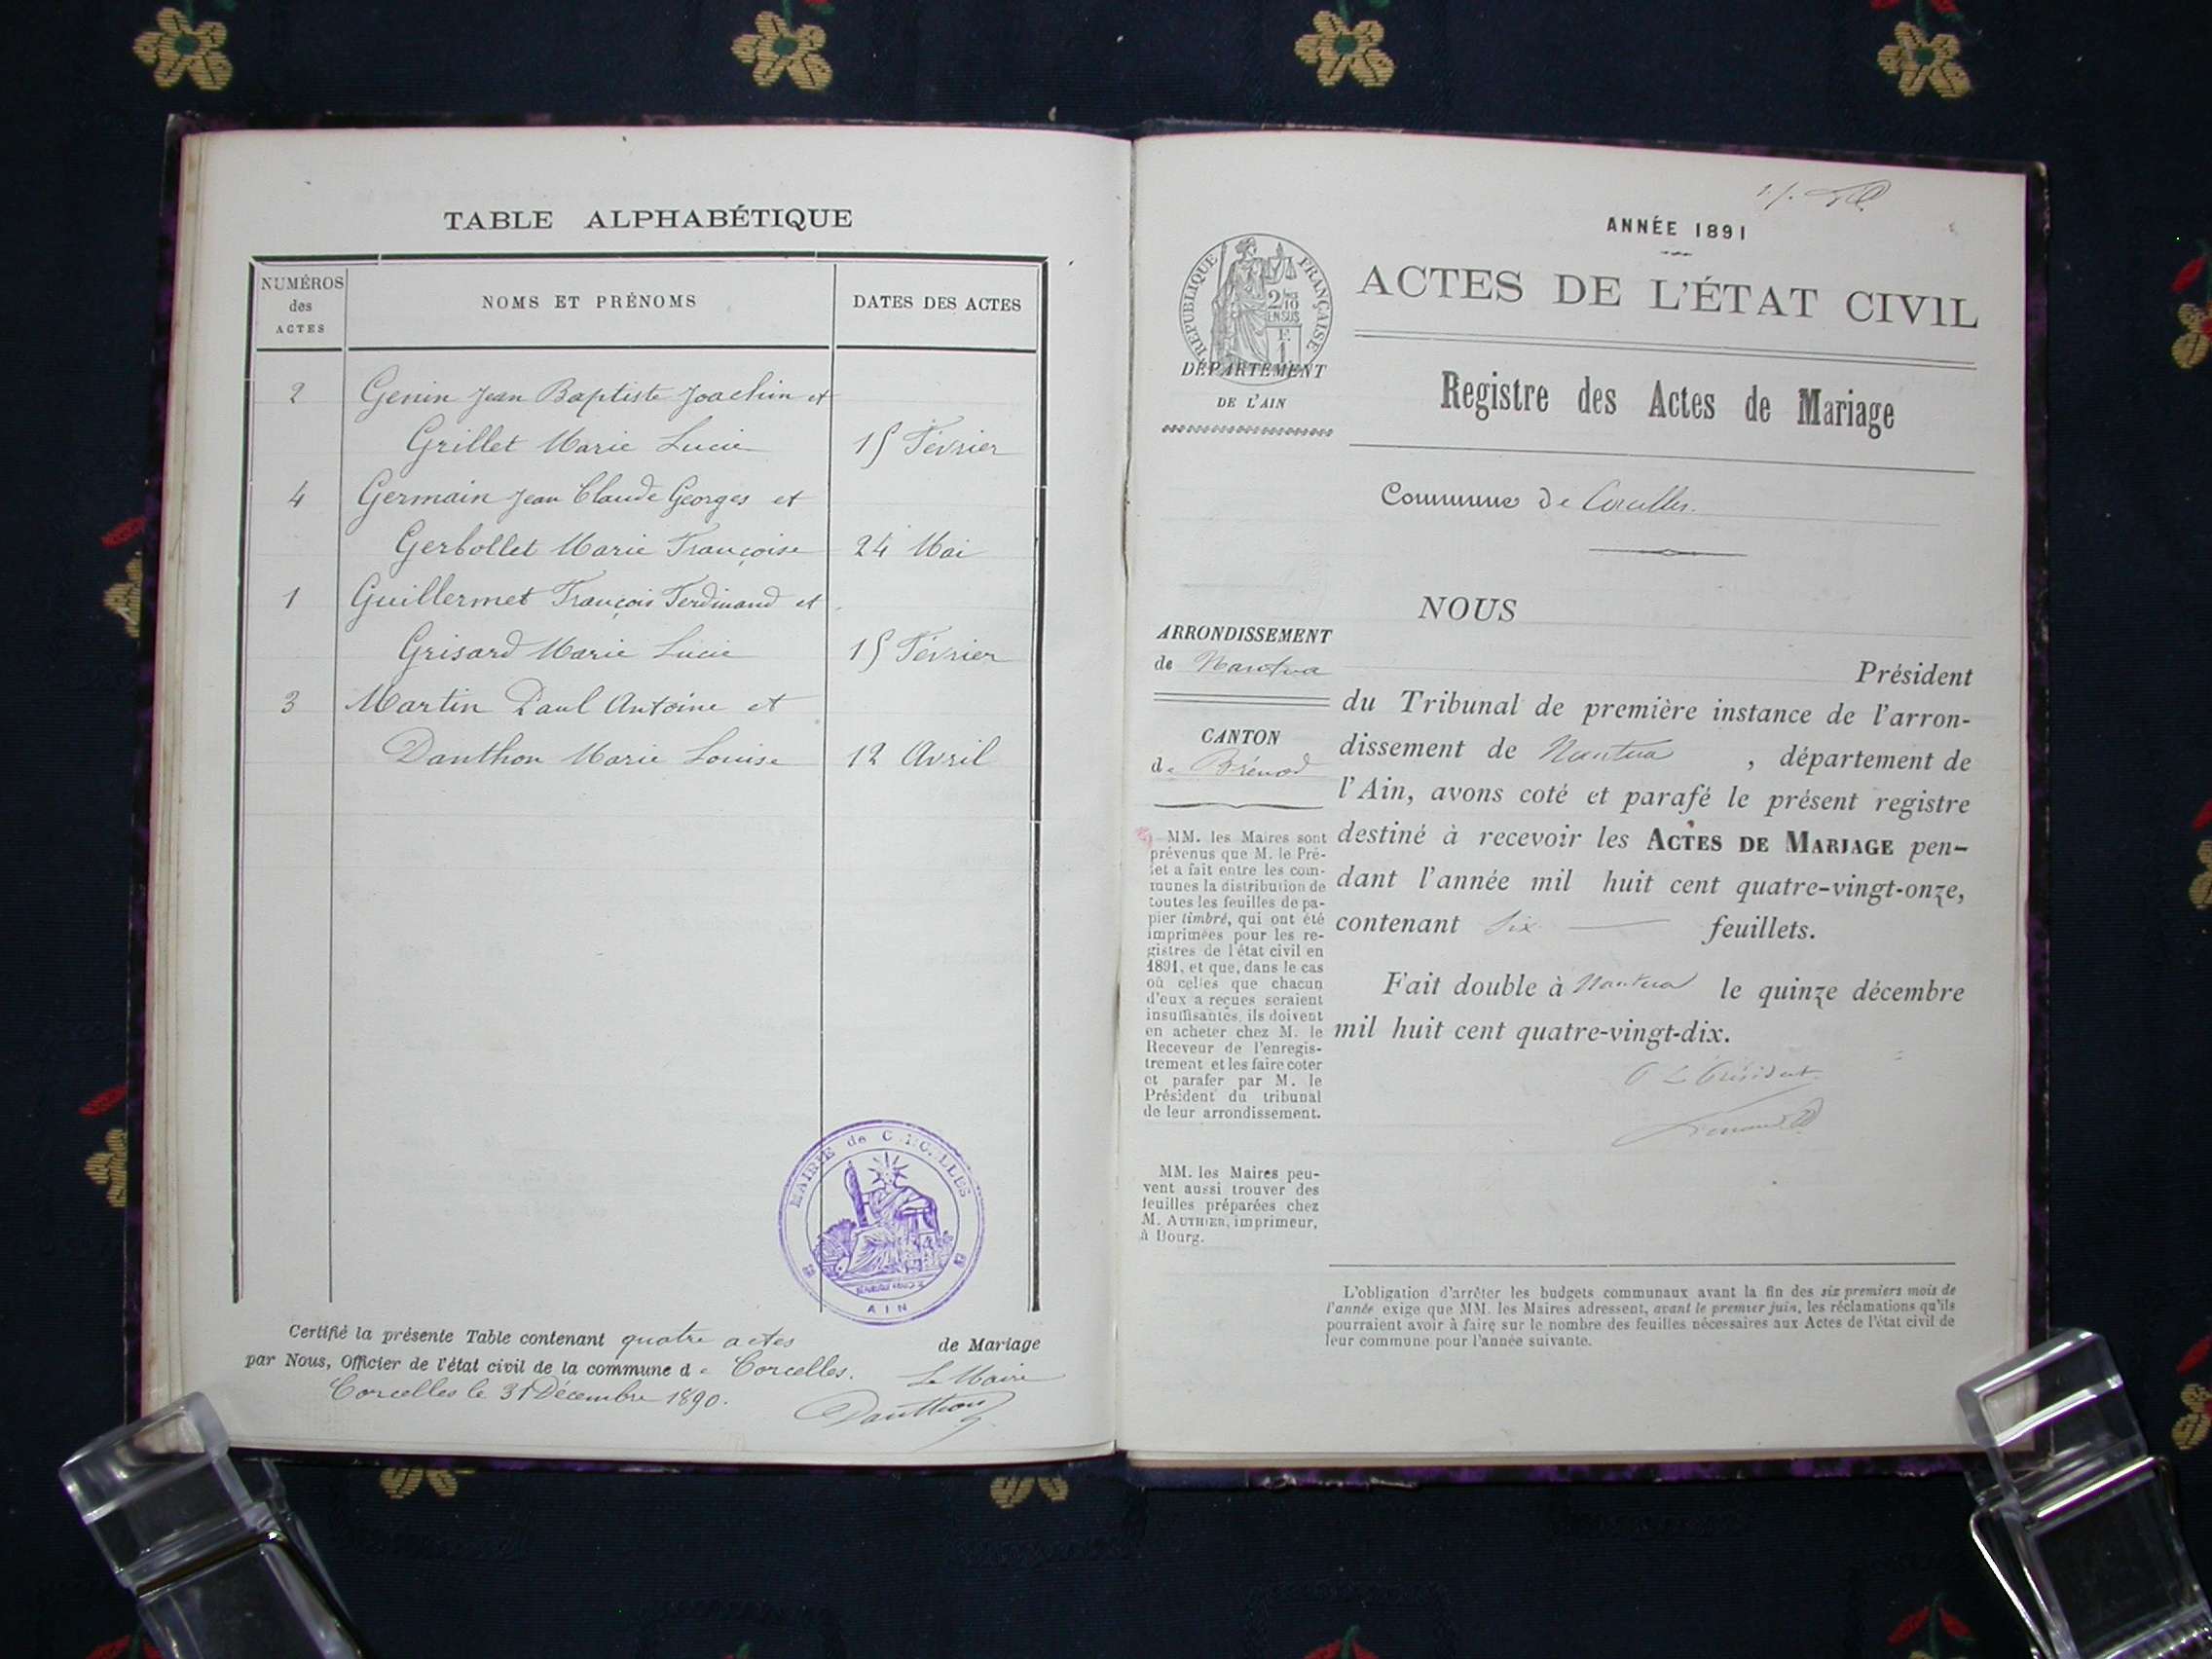 TABLE ALPHABÉTIQUE
NUMÉROS des ACTES
NOMS ET PRÉNOMS
DATES DES ACTES
2 Genin Jean Baptiste Joachim et
Grillet Marie Lucie 15 Février
4 Germain Jean Claude Georges et
Gerbollet Marie Françoise 24 Mai
1 Guillermet François Ferdinand et
Grisard Marie Lucie 15 Février
3 Martin Paul Antoine et
Danthon Marie Louise 12 Avril
MAIRIE de CORCELLES
AIN
Certifié la présente Table contenant quatre actes de Mariage
par Nous, Officier de l'état civil de la commune de Corcelles. Le Maire
Corcelles le 31 Décembre 1890. Danthon
ANNÉE 1891
RÉPUBLIQUE FRANÇAISE
2/10
EN SUS
F.
1
ACTES DE L'ÉTAT CIVIL
DÉPARTEMENT
DE L'AIN
Registre des Actes de Mariage
Commune de Corcelles.
NOUS
ARRONDISSEMENT
de Nantua
CANTON
de Brénod
Président
du Tribunal de première instance de l'arron-
dissement de Nantua, département de
l'Ain, avons coté et parafé le présent registre
destiné à recevoir les ACTES DE MARIAGE pen-
dant l'année mil huit cent quatre-vingt-onze,
contenant six feuillets.
Fait double à Nantua le quinze décembre
mil huit cent quatre-vingt-dix.
Le Président
MM. les Maires sont
prévenus que M. le Pré-
fet a fait entre les com-
munes la distribution de
toutes les feuilles de pa-
pier timbré, qui ont été
imprimées pour les re-
gistres de l'état civil en
1891, et que, dans le cas
où celles que chacun
d'eux a reçues seraient
insuffisantes, ils doivent
en acheter chez M. le
Receveur de l'enregis-
trement et les faire coter
et parafer par M. le
Président du tribunal
de leur arrondissement.
MM. les Maires peu-
vent aussi trouver des
feuilles préparées chez
M. AUTHIER, imprimeur,
à Bourg.
L'obligation d'arrêter les budgets communaux avant la fin des six premiers mois de
l'année exige que MM. les Maires adressent, avant le premier juin, les réclamations qu'ils
pourraient avoir à faire sur le nombre des feuilles nécessaires aux Actes de l'état civil de
leur commune pour l'année suivante.